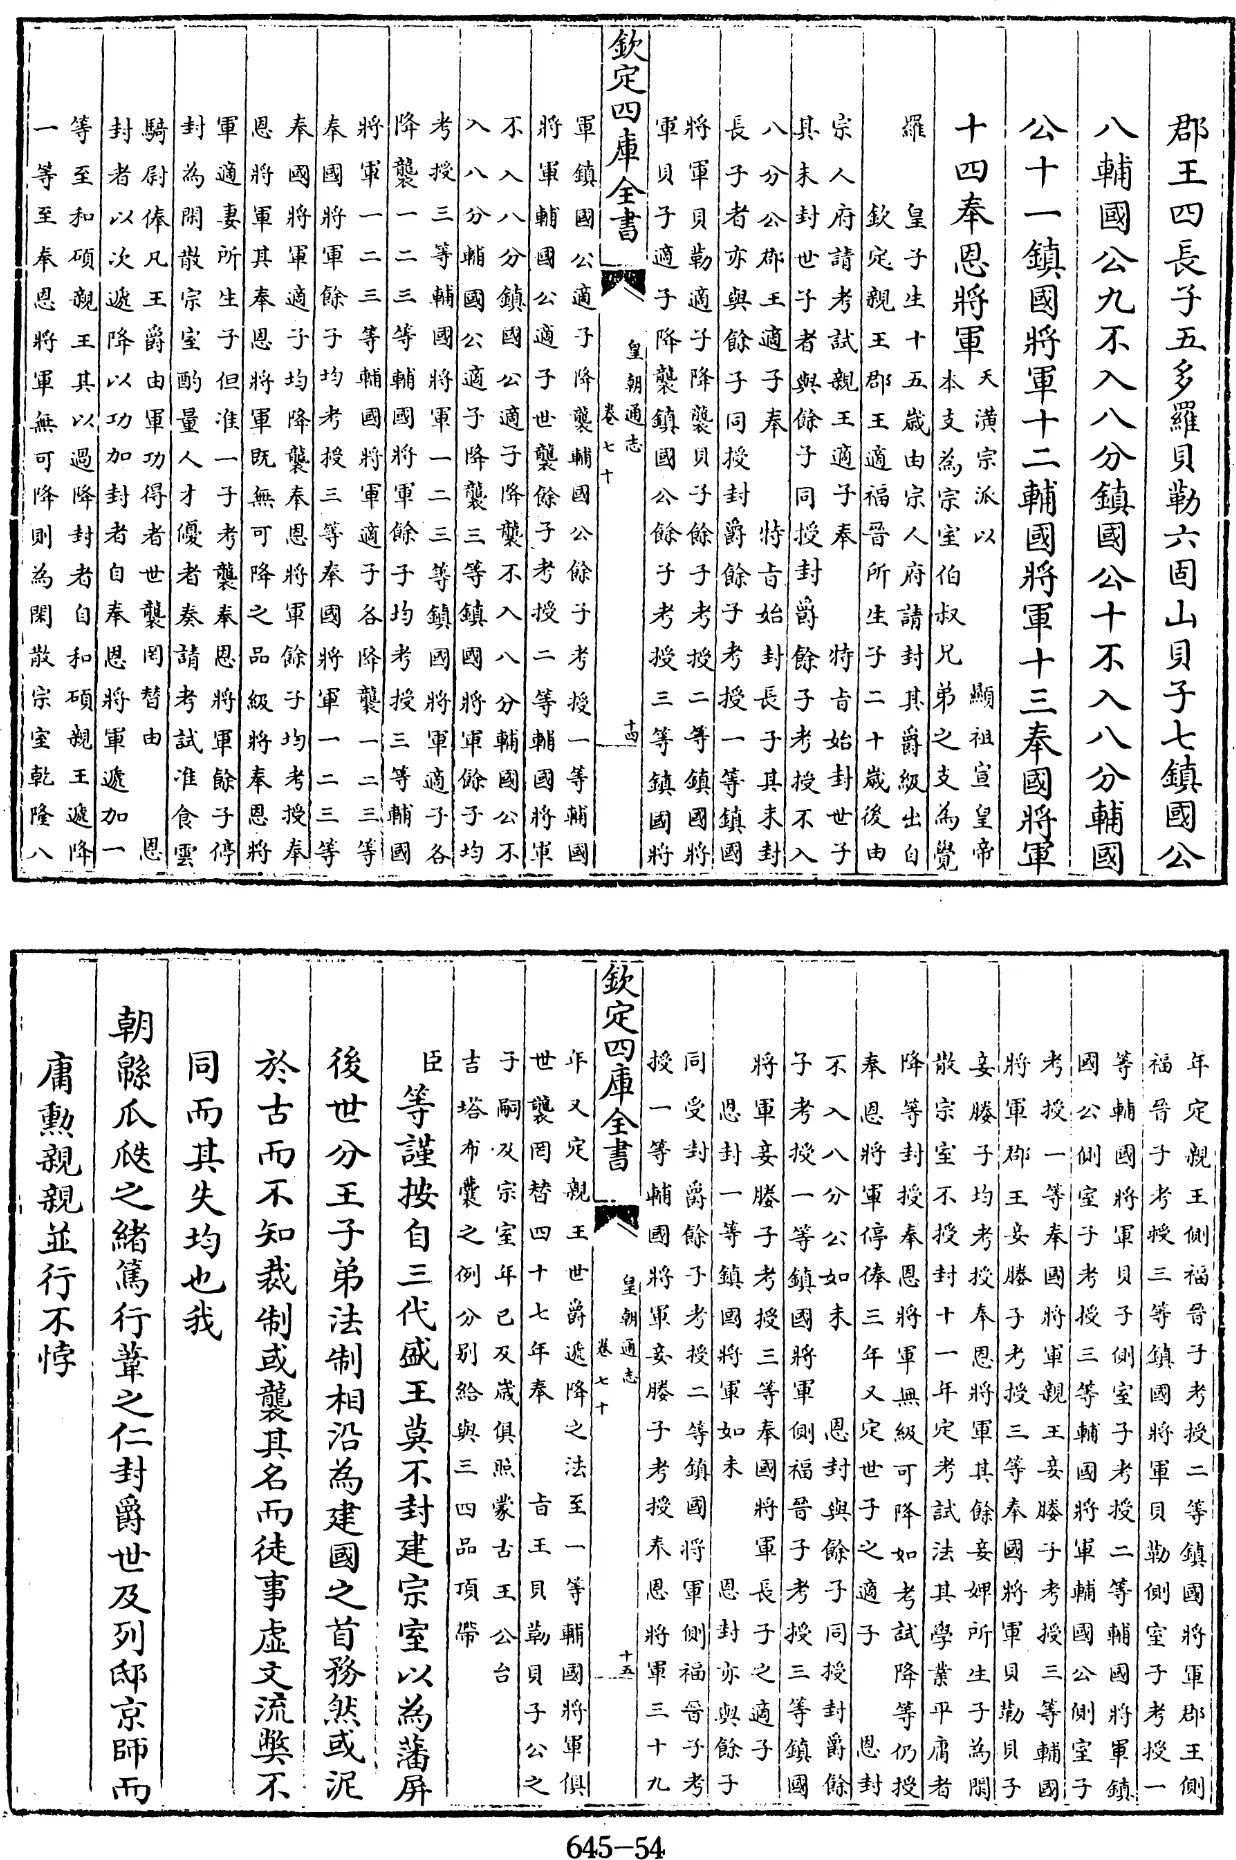 郡王四長子五多羅貝勒六固山貝子七鎮國公
八輔國公九不入八分鎮國公十不入八分輔國
公十一鎮國將軍十二輔國將軍十三奉國將軍
十四奉恩將軍天潢宗派以 顯祖宣皇帝
本支為宗室伯叔兄弟之支為覺
羅 皇子生十五歲由宗人府請封其爵級出自
欽定親王郡王適福晉所生子二十歲後由
宗人府請考試親王適子奉 特旨始封世子
其未封世子者與餘子同授封爵餘子考授不入
八分公郡王適子奉 特旨始封長子其未封
長子者亦與餘子同授封爵餘子考授一等鎮國
將軍貝勒適子降襲貝子餘子考授二等鎮國將
軍貝子適子降襲鎮國公餘子考授三等鎮國將
欽定四庫全書
皇朝通志
卷七十
十四
軍鎮國公適子降襲輔國公餘子考授一等輔國
將軍輔國公適子世襲餘子考授二等輔國將軍
不入八分鎮國公適子降襲不入八分輔國公不
入八分輔國公適子降襲三等鎮國將軍餘子均
考授三等輔國將軍一二三等鎮國將軍適子各
降襲一二三等輔國將軍餘子均考授三等輔國
將軍一二三等輔國將軍適子各降襲一二三等
奉國將軍餘子均考授三等奉國將軍一二三等
奉國將軍適子均降襲奉恩將軍餘子均考授奉
恩將軍其奉恩將軍既無可降之品級將奉恩將
軍適妻所生子但准一子考襲奉恩將軍餘子停
封為閑散宗室酌量人才優者奏請考試准食雲
騎尉俸凡王爵由軍功得者世襲罔替由 恩
封者以次遞降以功加封者自奉恩將軍遞加一
等至和碩親王其以過降封者自和碩親王遞降
一等至奉恩將軍無可降則為閑散宗室乾隆八
年定親王側福晉子考授二等鎮國將軍郡王側
福晉子考授三等鎮國將軍貝勒側室子考授一
等輔國將軍貝子側室子考授二等輔國將軍鎮
國公側室子考授三等輔國將軍輔國公側室子
考授一等奉國將軍親王妾媵子考授三等輔國
將軍郡王妾媵子考授三等奉國將軍貝勒貝子
妾媵子均考授奉恩將軍其餘妾婢所生子為閑
散宗室不授封十一年定考試法其學業平庸者
降等封授奉恩將軍無級可降如考試降等仍授
奉恩將軍停俸三年又定世子之適子 恩封
不入八分公如未 恩封與餘子同授封爵餘
子考授一等鎮國將軍側福晉子考授三等鎮國
將軍妾媵子考授三等奉國將軍長子之適子
恩封一等鎮國將軍如未 恩封亦與餘子
同受封爵餘子考授二等鎮國將軍側福晉子考
授一等輔國將軍妾媵子考授奉恩將軍三十九
欽定四庫全書
皇朝通志
卷七十
十五
年又定親王世爵遞降之法至一等輔國將軍俱
世襲罔替四十七年奉 旨王貝勒貝子公之
子嗣及宗室年已及歲俱照蒙古王公台
吉塔布囊之例分別給與三四品頂帶
臣等謹按自三代盛王莫不封建宗室以為藩屏
後世分王子弟法制相沿為建國之首務然或泥
於古而不知裁制或襲其名而徒事虛文流弊不
同而其失均也我
朝緜瓜瓞之緒篤行葦之仁封爵世及列邸京師而
庸勲親親並行不悖
645-54